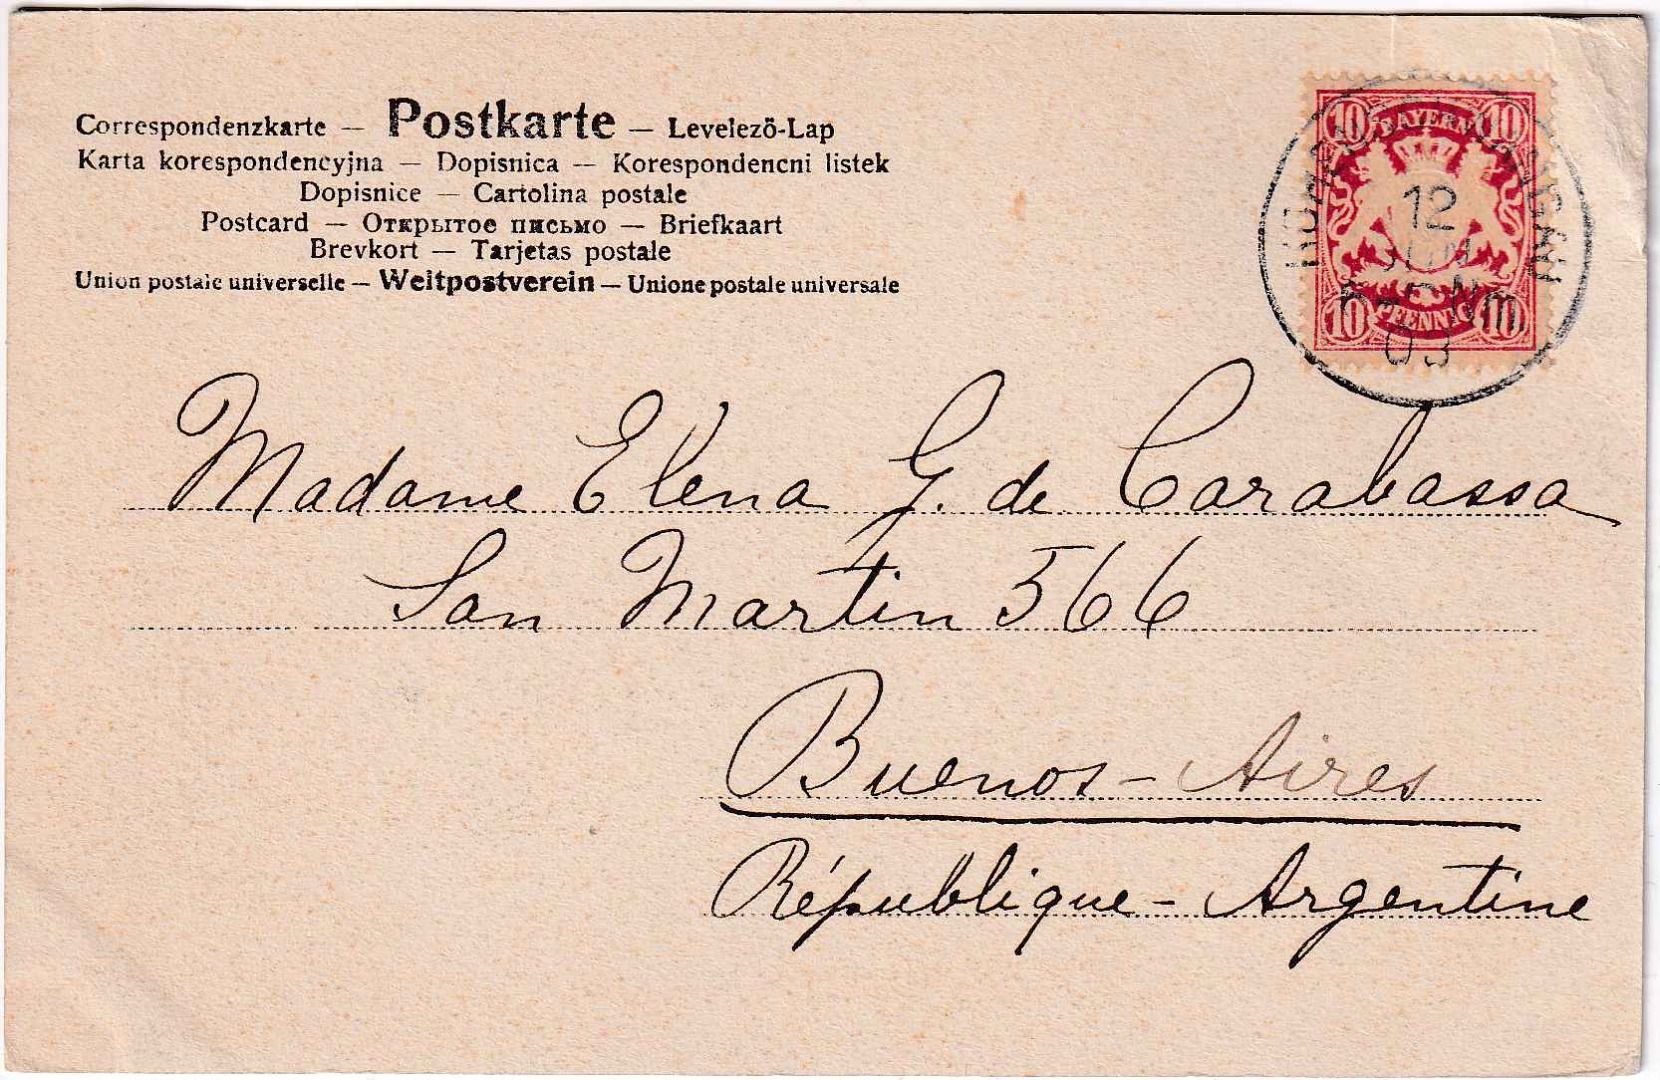 Correspondenzkarte — Postkarte — Levelezö-Lap
Karta korespondencyjna — Dopisnica — Korespondencni listek
Dopisnice — Cartolina postale
Postcard — Открытое письмо — Briefkaart
Brevkort — Tarjetas postale
Union postale universelle — Weltpostverein — Unione postale universale
10 BAYERN 10
12
JUN
Nm.
10 PFENNIG 10
03
Madame Elena G. de Carabassa
San Martin 566
Buenos-Aires
République-Argentine